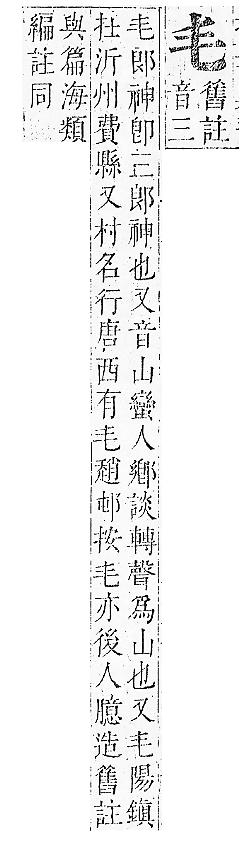 毛舊註
音三
毛郎神卽三郎神也又音山蠻人鄉談轉聲爲山也又毛陽鎮
在沂州費縣又村名行唐西有毛趙邨按毛亦後人臆造舊註
與篇海類
編註同